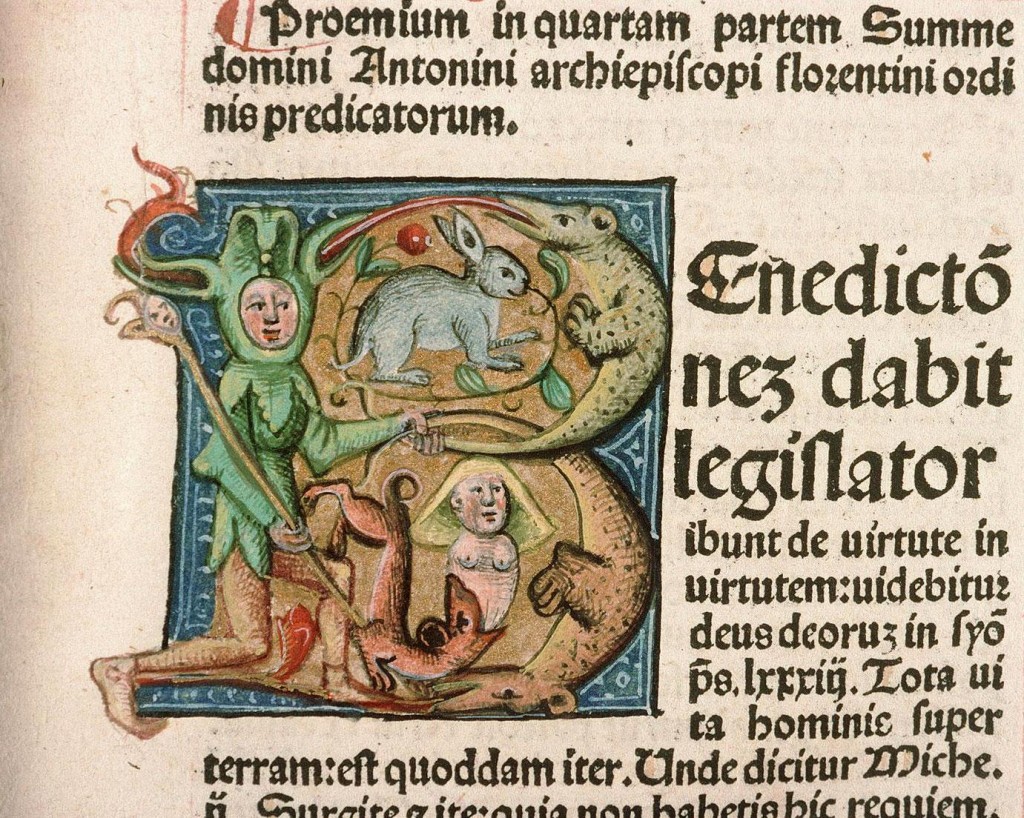 Proemium in quartam partem Summe
domini Antonini archiepiſcopi florentini ordi
nis predicatorum.
BEnedictō
neꝫ dabit
legiſlator
ibunt de uirtute in
uirtutem:uidebitur
deus deoruꝫ in ſyō
p̄s. lxxxiij. Tota ui
ta hominis ſuper
terram:eſt quoddam iter. Unde dicitur Miche.
ij. Surgite ⁊ ite:quia non habetis hic requiem.